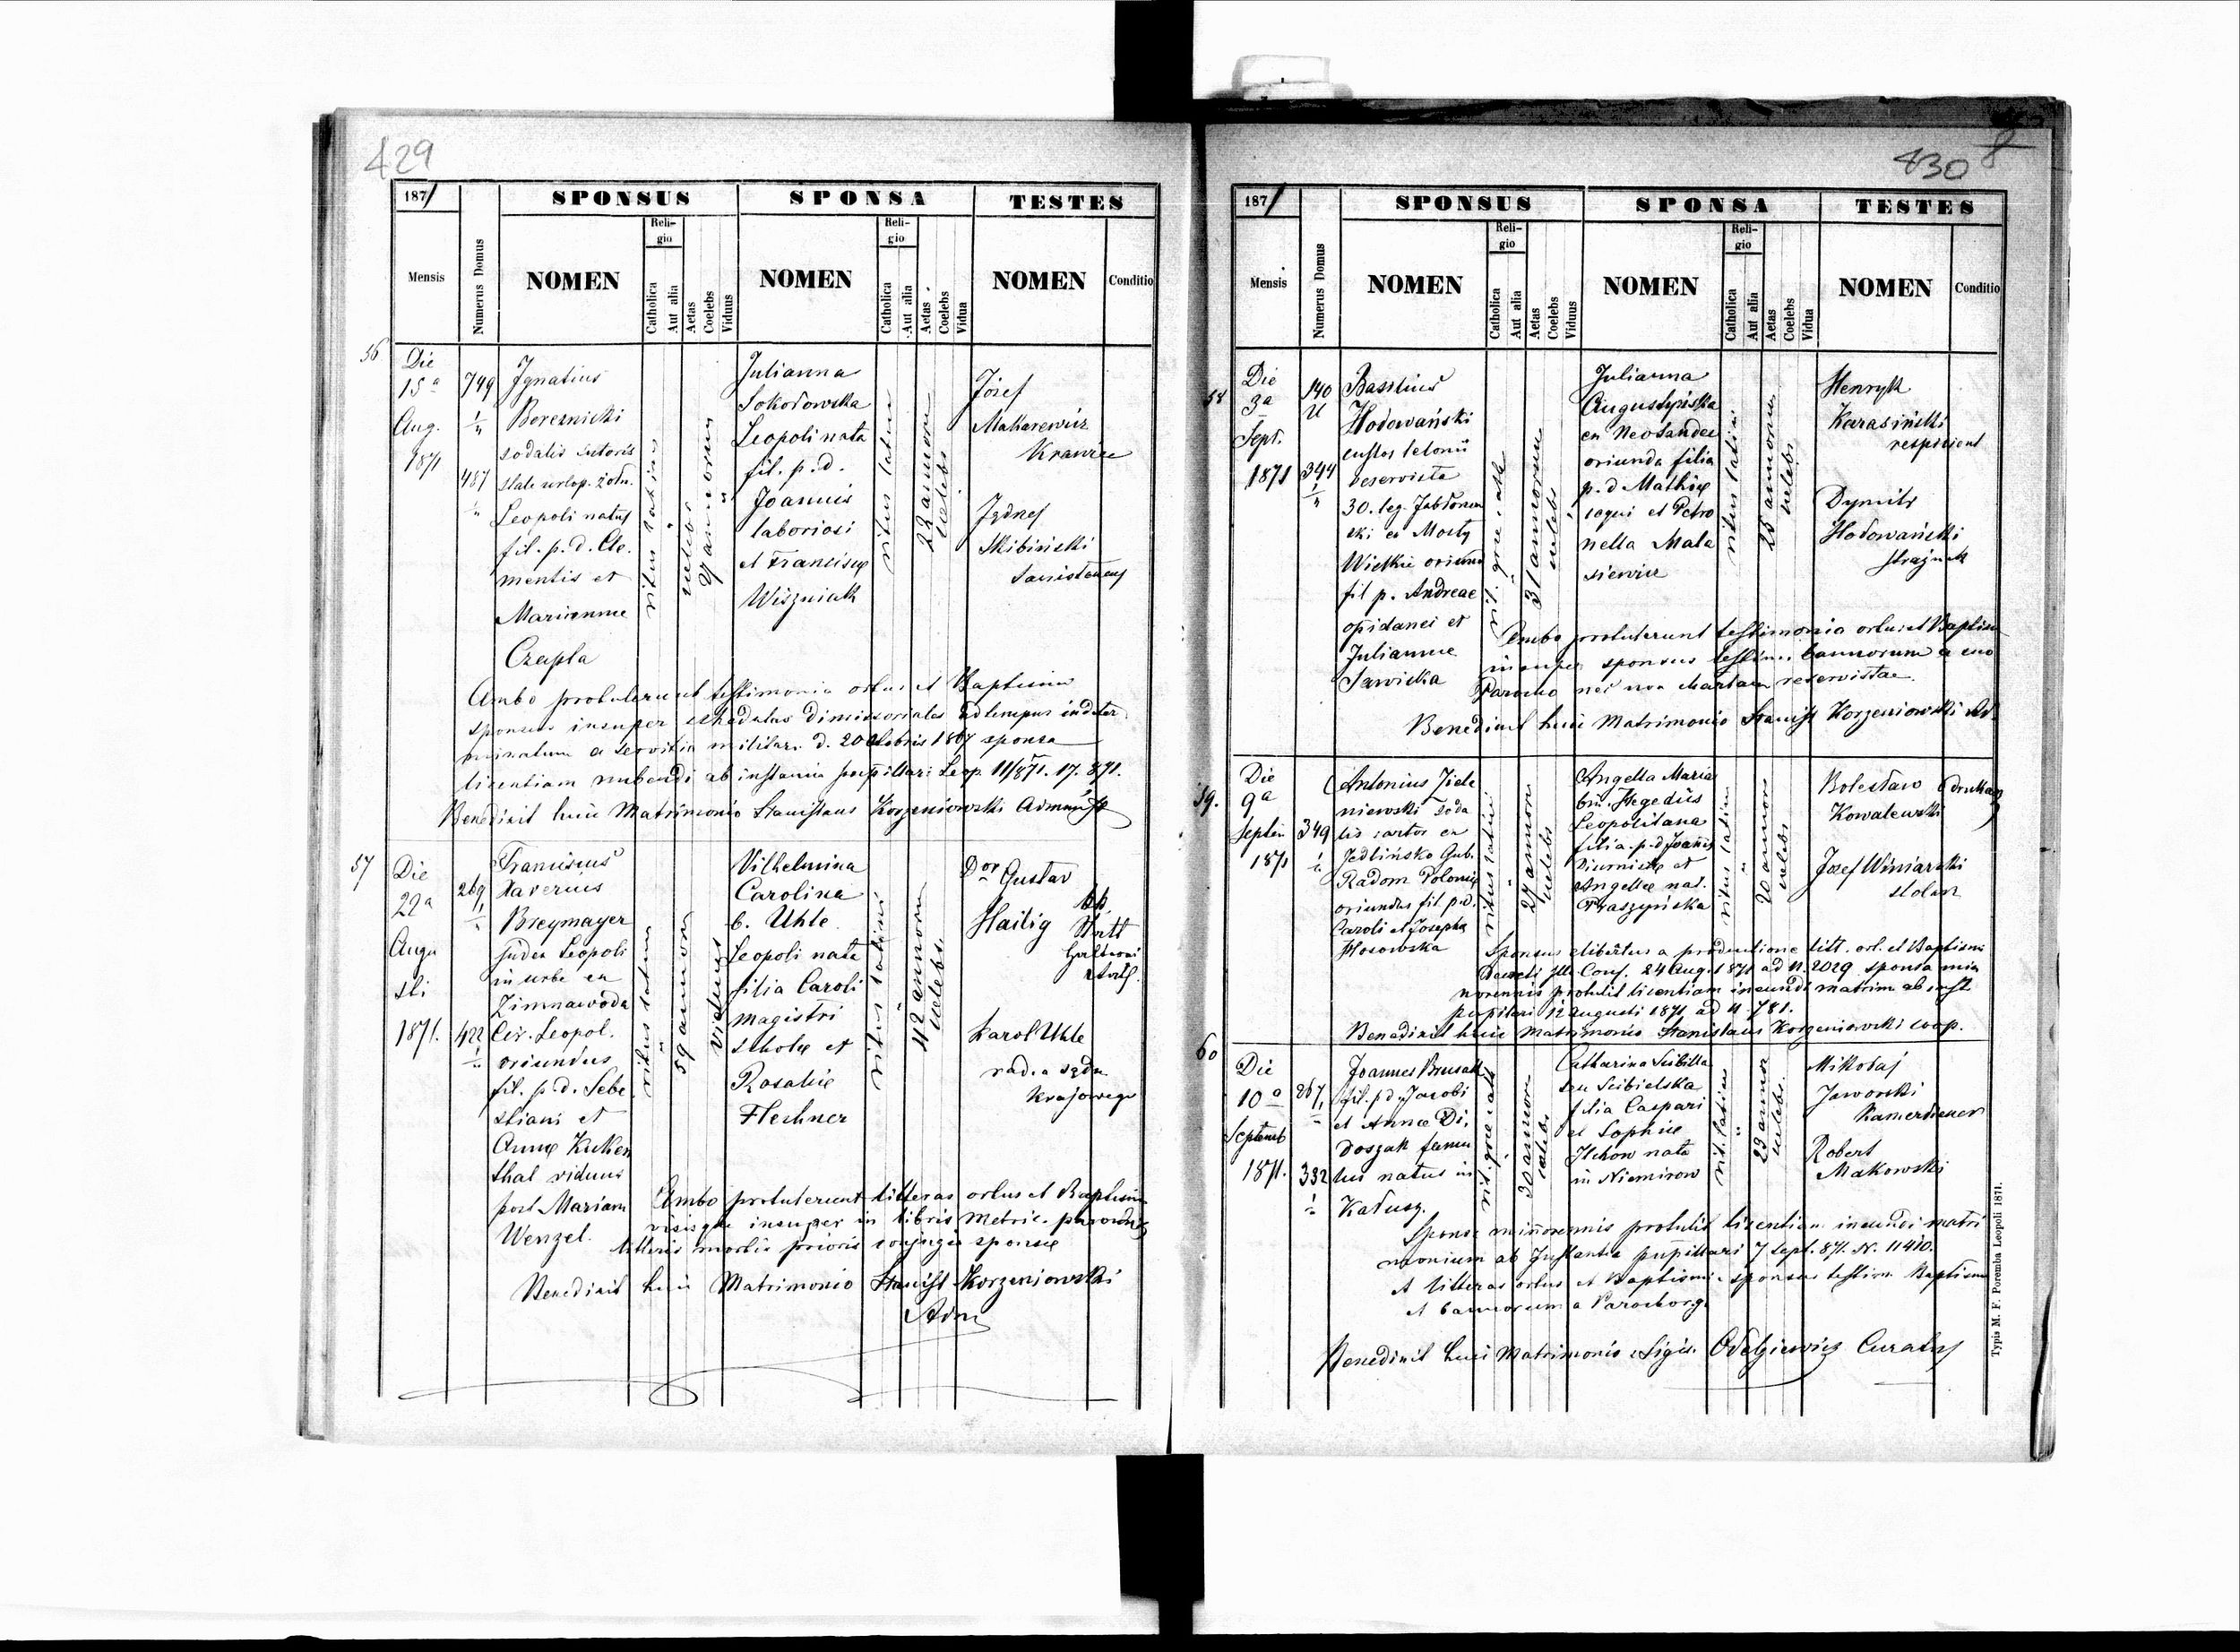 429
187/
SPONSUS
SPONSA
TESTES
Mensis
Numerus Domus
NOMEN
Religio
Catholica
Aut alia
Aetas
Coelebs
Viduus
NOMEN
Religio
Catholica
Aut alia
Aetas
Coelebs
Vidua
NOMEN
Conditio
56
Die
15a
Aug.
1871
749
487
Ignatius
sodalis sutoris
Leopoli natus
fil. p. d. Cle.
mentis et
Marianne
Czapla
ritus latini
Julianna
Sokołowska
Leopoli nata
fil. p. d.
Joannis
laboriosi
et Francisce
Wiszniak
ritus latini
22 annorum
coelebs
Józef
Makarewicz
Krawiec
Jędrzej
Skibiński
Ambo protulerunt testimonia ortus et Baptismi
sponsus insuper schedulas dimissoriales ad tempus indeter
minatum a servitio militari d. 20 Octobris 1867 sponsa
licentiam nubendi ab instantia pupillari Leop. 11/871. 17. 871.
Benedixit huic Matrimonio Stanislaus Korzeniowski
57
Die
22a
Augu
sti
1871.
269
422
Franciscus
Xaverius
Breymayer
judex Leopoli
in urbe ex
Zimnawoda
Cir. Leopol.
oriundus
fil. p. d. Seba
stiani et
Anne Kuken
thal viduus
post Mariam
Wenzel.
ritus latini
59 annorum
Viduus
Vilhelmina
Carolina
b. Uhle
Leopoli nata
filia Caroli
magistri
schole et
Rosalie
Flechner
ritus latini
42 annorum
coelebs.
Dor Gustav
Hailig
Karol Uhle
radca sądu
Krajowego
Ambo protulerunt litteras ortus et Baptismi
visisque insuper in libris Metric. parochie
litteris mortis prioris conjugis sponse
Benedixit huic Matrimonio Stanisl Korzeniowski
Adm
430
8
187/
SPONSUS
SPONSA
TESTES
Mensis
Numerus Domus
NOMEN
Religio
Catholica
Aut alia
Aetas
Coelebs
Viduus
NOMEN
Religio
Catholica
Aut alia
Aetas
Coelebs
Vidua
NOMEN
Conditio
58
Die
3a
Sept.
1871
140
344
Basilius
Hodowański
custos telonii
reservista
30. leg. Jabłonow
ski ex Mosty
Wielkie oriund
fil p. Andreae
opidanei et
Julianne
Sawicka
rit. grec. cath
31 annorum
coelebs
Julianna
Augustyńska
ex Neosandec
oriunda filia
p. d Mathie
coqui et Petro
nella Mala
siewicz
ritus latini
25 annorum
coelebs
Henryk
Karasiński
respicient
Dymitr
Hodowański
strażnik
Ambo protulerunt testimonia ortus et Baptism
insuper sponsus testim. bannorum a suo
Parocho nec non Martam reservistae.
Benedixit huic Matrimonio Stanisl Korzeniowski Ad.
59.
Die
9a
Septem
1871
349
Antonius Ziele
niewski Soda
lis sartor ex
Jedlińsko Gub.
Radom Polonie
oriundus fil p. d.
Caroli et Josepha
ritus latini
27 annorum
coelebs
Angella Maria
bin. Hegedüs
Leopolitana
filia p. d Joanis
Diurniste et
Angelle nat.
ritus latini
20 annorum
coelebs
Bolesław
Kowalewski
drukarz
Józef Winiarski
stolarz
Sponsus elibertus a productione litt. ort. et Baptismi
Decreti Ill. Cons. 24 Aug. 1871 ad N. 2029 sponsa min
norennis protulit licentiam ineundi matrim ab inst
pupillari 12 augusti 1871 ad N. 781.
Benedixit huic Matrimonio Stanislaus Korzeniowski coop.
60
Die
10a
Septemb
1871.
267
332
Joannes Brusak
fil. p d Jacobi
et Anne Di,
Doszak famu
lus natus in
Kałusz.
rit. grec cath
30 annor
coelebs
Catharina Scibilla
seu Scibielska
filia Caspari
et Sophie
Ilchow nata
in Niemirow
rit latini
23 annor
coelebs.
Mikołaj
Jaworski
Kamerdiener
Robert
Makowski
Sponsa minnorennis protulit licentiam ineundi matri
monium ab Instantia pupillari 7 Sept. 871. N. 11410.
et litteras ortus et Baptismi sponsus testim Baptism
et bannorum a Parochorg.
Benedixit huic Matrimonio Sigis. Odelgiewicz Curatus
Typis M. F. Poremba Leopoli 1871.